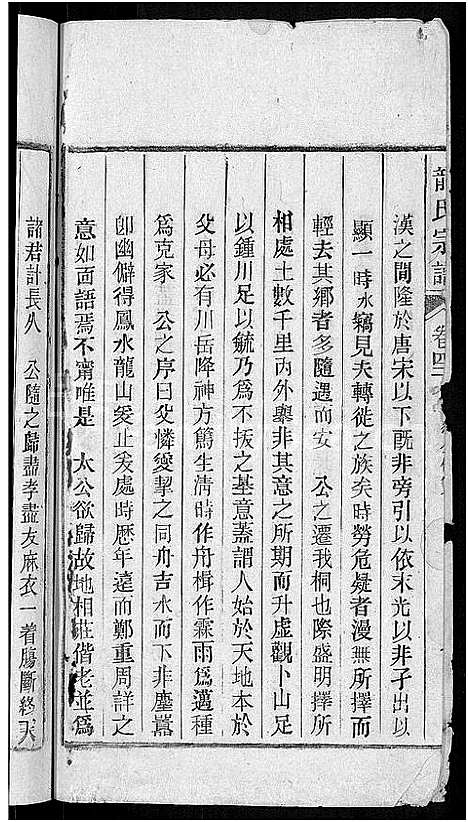 龍氏宗譜 卷四
漢之間隆於唐宋以下既非旁引以依末光以非子出以
顯一時水竊見夫轉徙之族矣時勞危疑者漫無所擇而
輕去其鄉者多隨遇而安 公之遷我桐也際盛明擇所
相處土數千里內外舉非其意之所期而升虛觀卜山足
以鍾川足以毓乃爲不拔之基意蓋謂人始於天地本於
父母必有川岳降神方篤生淸時作舟楫作霖雨爲邁種
爲克家 公之序曰父憐變挈之同舟吉水而下非塵囂
卽幽僻得鳳水龍山爰止爰處時歷年遠而鄭重周詳之
意如面語焉不甯唯是 太公欲歸故地相莊偕老並爲
諸君計長久 公隨之歸盡孝盡友麻衣一着腸斷終天